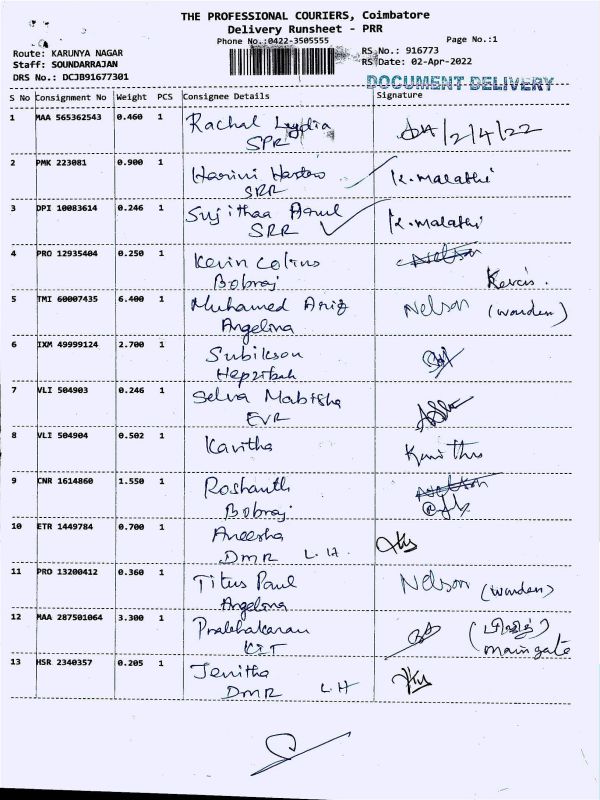 THE PROFESSIONAL COURIERS, Coimbatore
Delivery Runsheet - PRR
Phone No.:0422-3505555
Page No.:1
Route: KARUNYA NAGAR
RS No.: 916773
Staff: SOUNDARRAJAN
RS Date: 02-Apr-2022
DRS No.: DCJB91677301
DOCUMENT DELIVERY
S No Consignment No Weight PCS Consignee Details Signature
1 MAA 565362543 0.460 1 Rachal Lydia 2/4/22
SPR
2 PMK 223081 0.900 1 Harini K. Malathi
SRR
3 DPI 10083614 0.246 1 Sujithaa K. Malathi
SRR
4 PRO 12935404 0.250 1 Kevin Colins Nelson
Bobraj
5 TMI 60007435 6.400 1 Muhamed Nelson (warden)
Angelina
6 IXM 49999124 2.700 1 Subikson
Hepzibah
7 VLI 504903 0.246 1 Selva Mabisha
EVR
8 VLI 504904 0.502 1 Kavitha
9 CNR 1614860 1.550 1 Roshanth Nelson
Bobraj
10 ETR 1449784 0.700 1 Aneesha
DMR L.H.
11 PRO 13200412 0.360 1 Titus Paul Nelson (warden)
Angelina
12 MAA 287501064 3.300 1 Prabhakaran
KIT main gate
13 HSR 2340357 0.205 1 Jenitha
DMR L.H